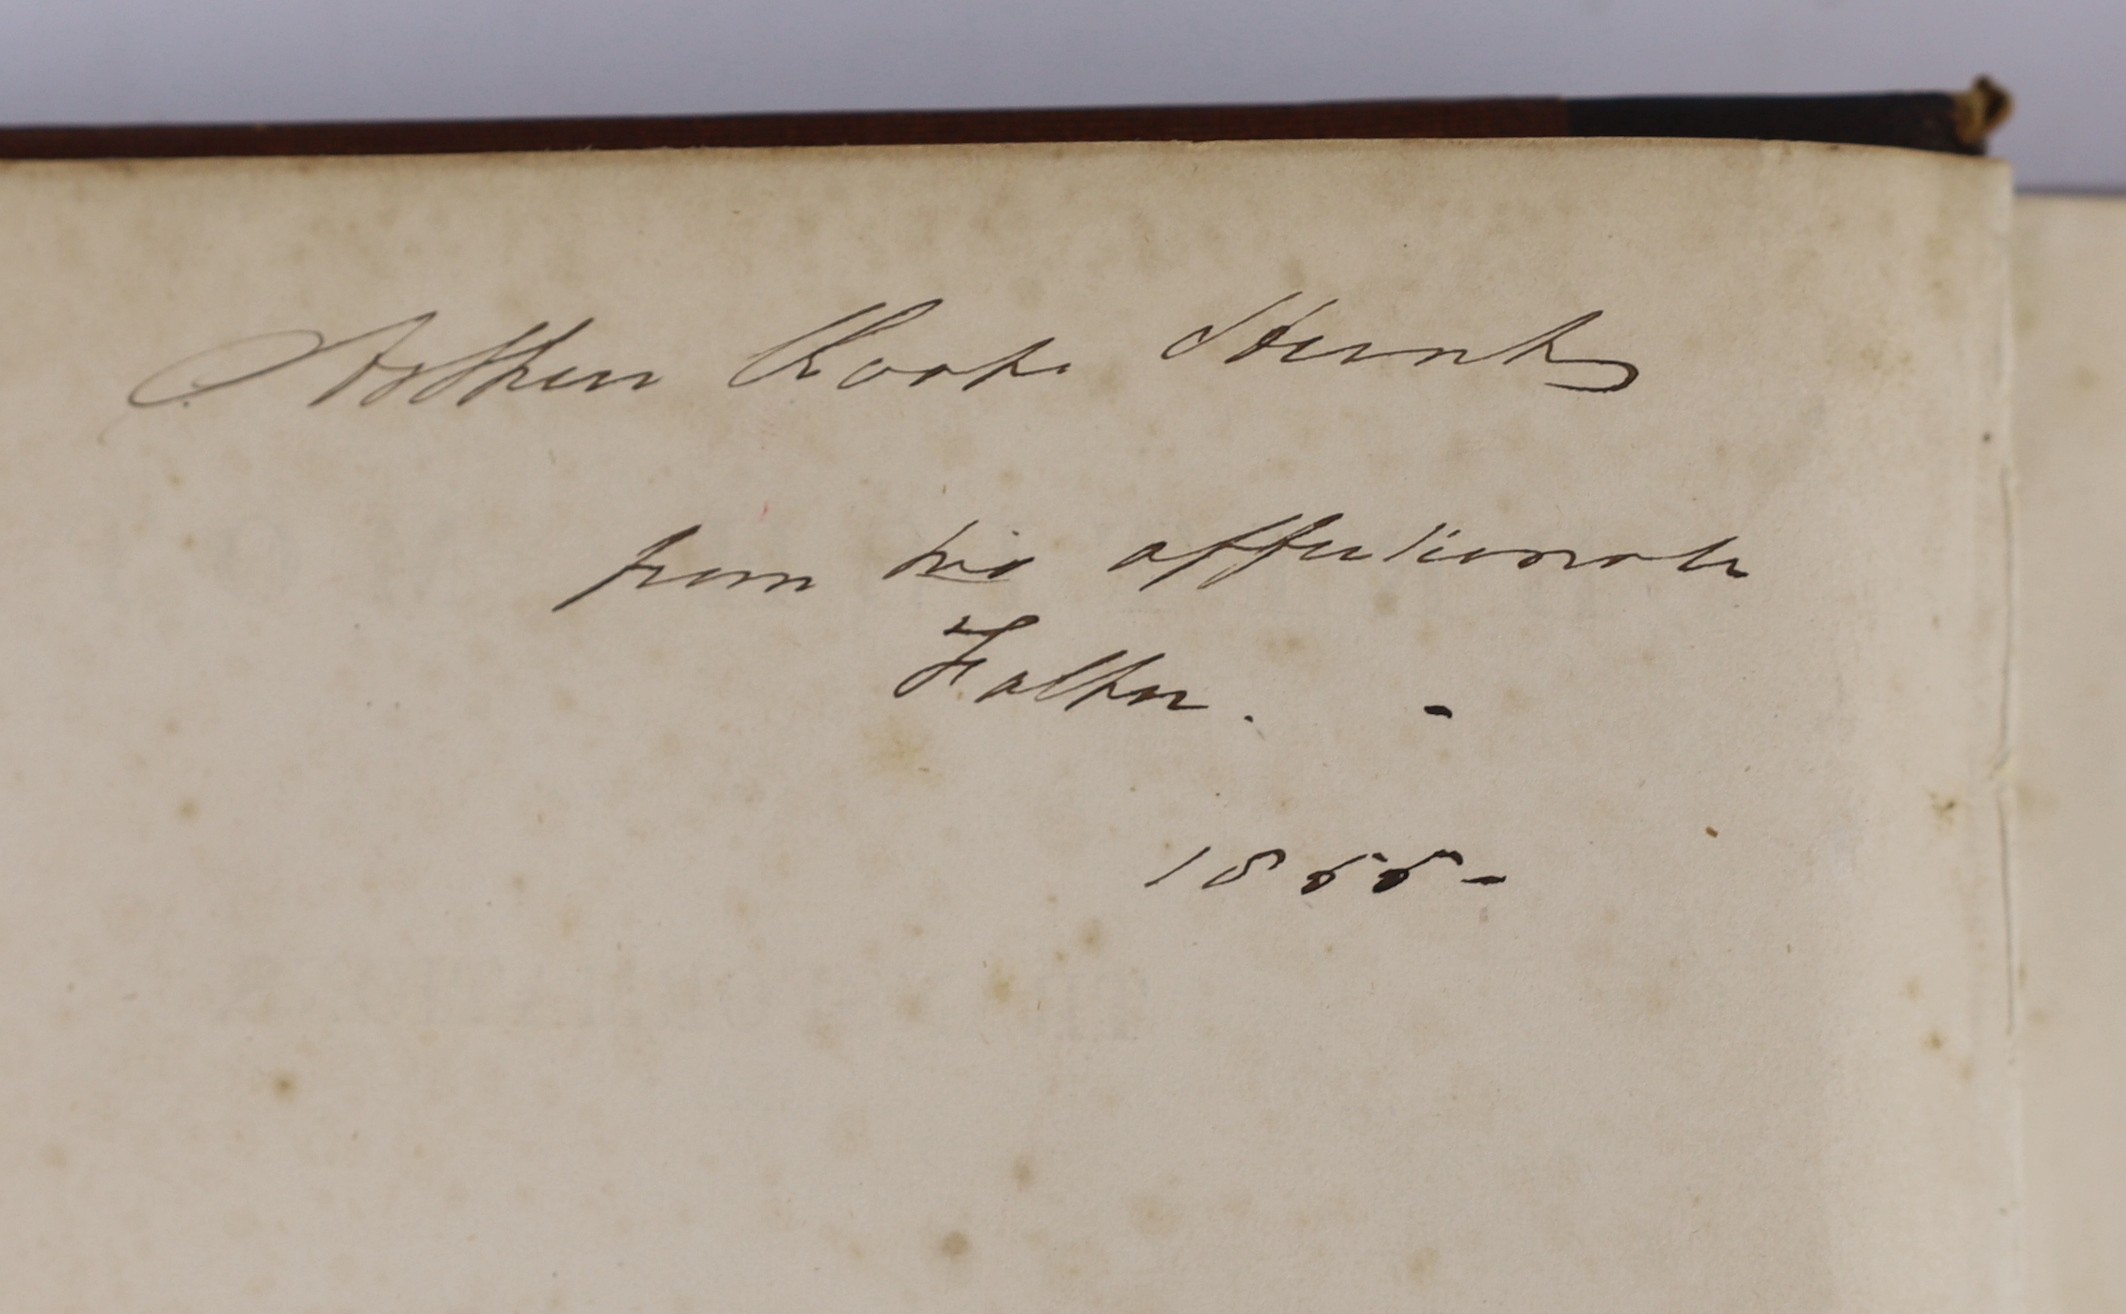 Arthur Roope Hunt
from his affectionate
Father. -
1855 -